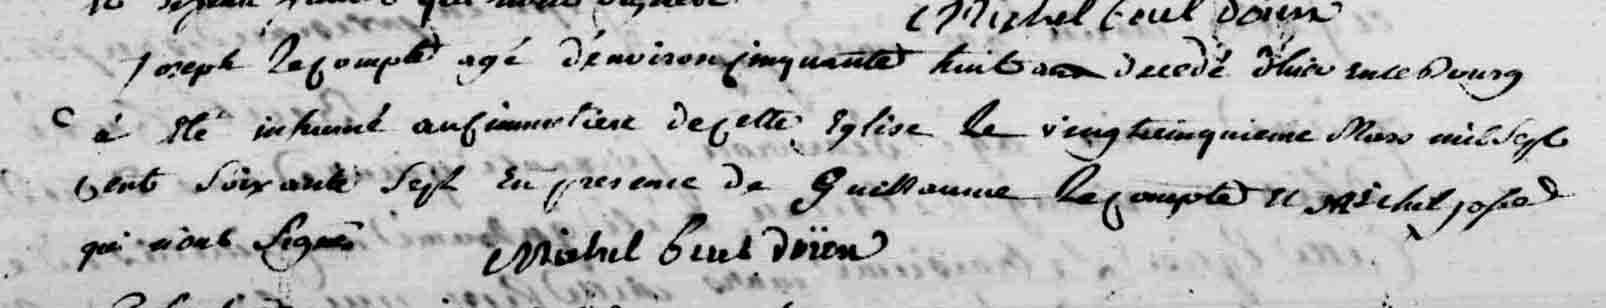 qui n'ont signés
Michel
Joseph Lecompte agé d'environ cinquante huit ans decedé d'hier en ce bourg
a été inhumé au cimmetiere de cette Eglise le vingtcinquieme Mars mil sept
cent soixante sept en presence de Guillaume Lecompte et Michel
qui n'ont signés Michel